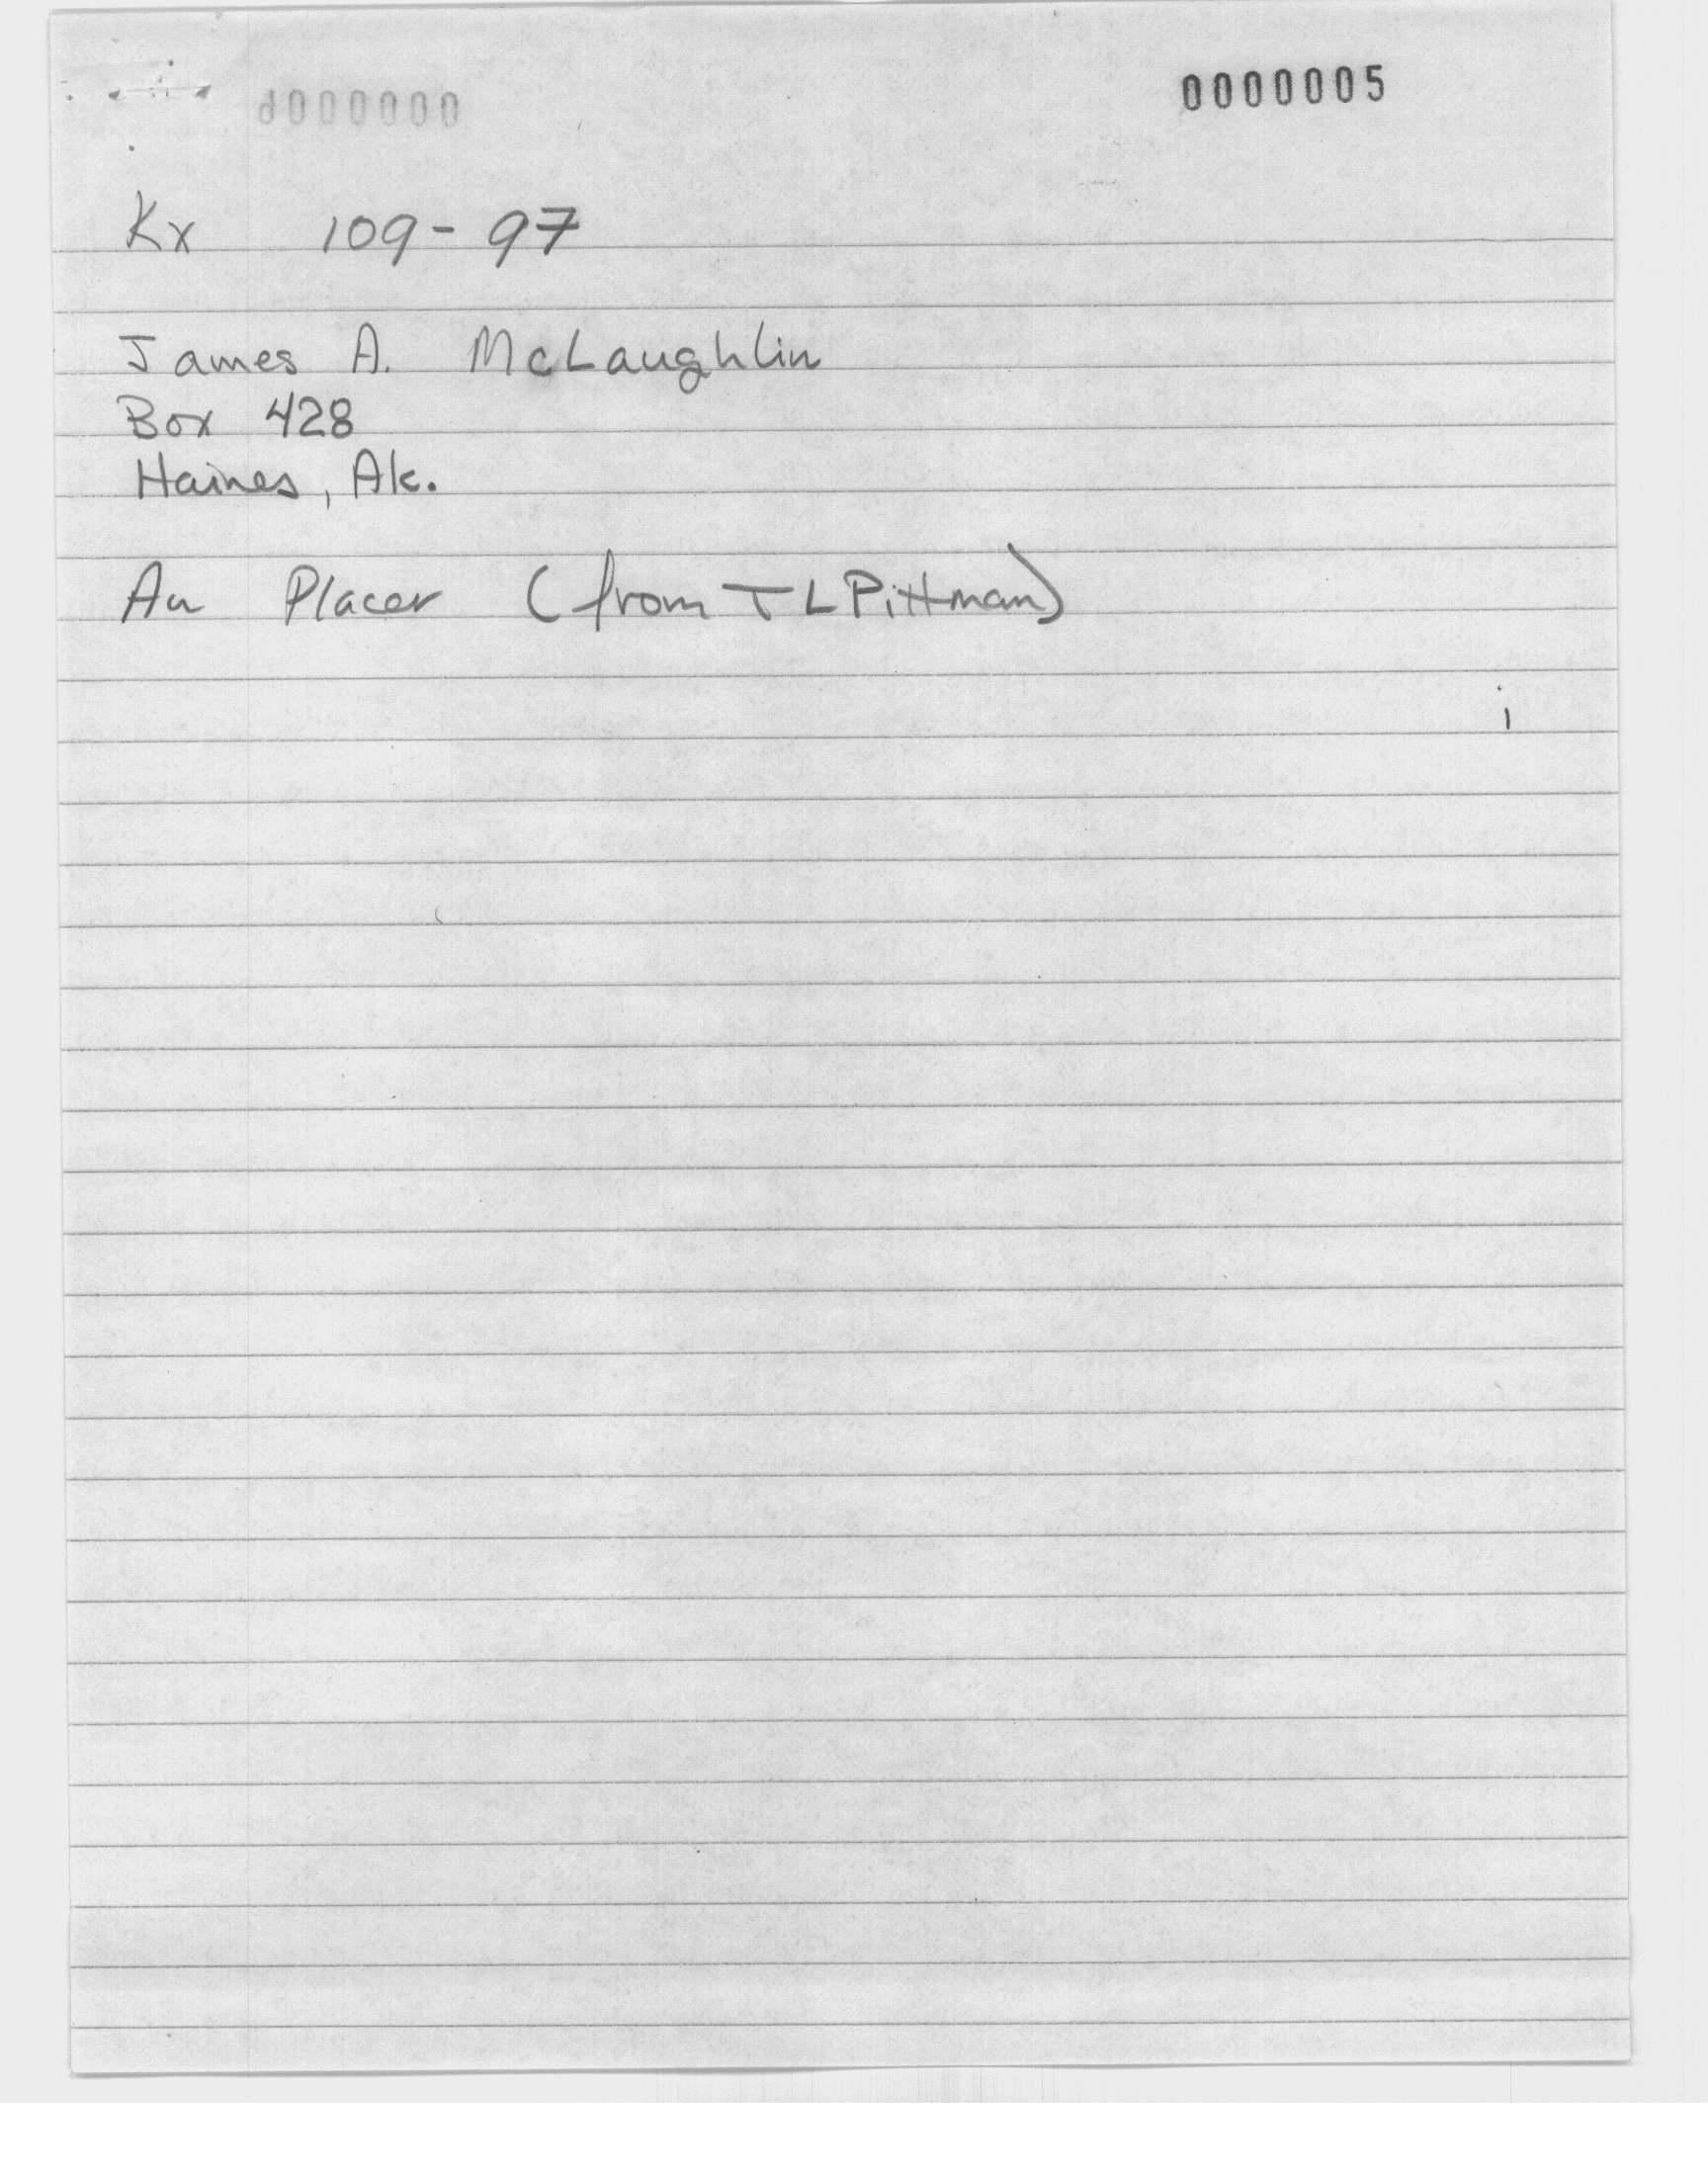 0000005
Kx 109-97
James A. McLaughlin
Box 428
Haines, Ak.
Au Placer (from TL Pittman)